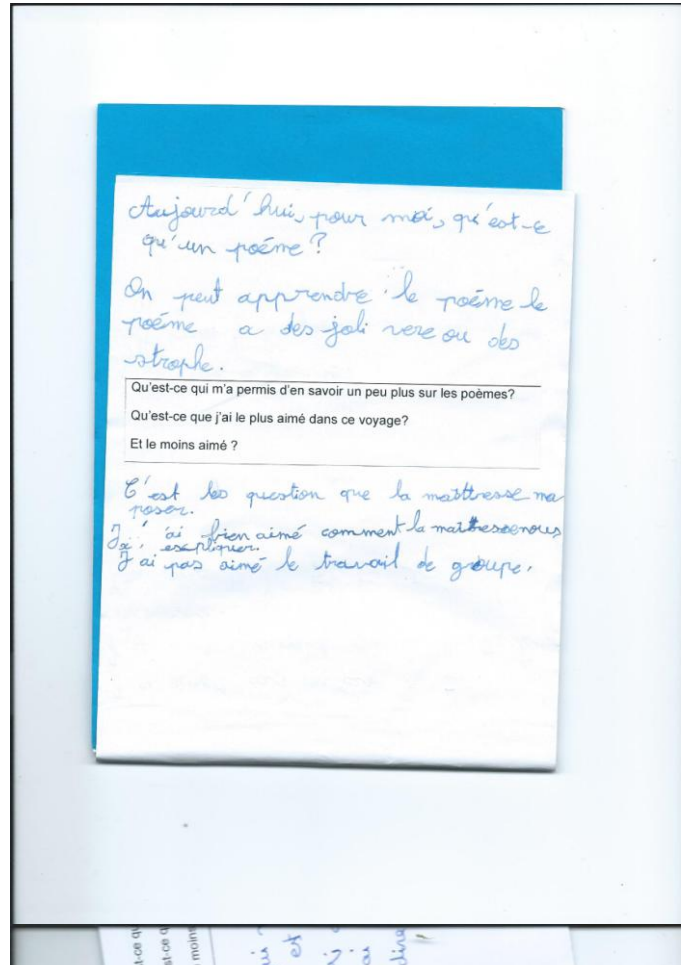 Aujourd'hui, pour moi, qu'est-ce
qu'un poéme?
On peut apprendre le poéme le
poéme a des joli vere ou des
strophe.
Qu'est-ce qui m'a permis d'en savoir un peu plus sur les poèmes?
Qu'est-ce que j'ai le plus aimé dans ce voyage?
Et le moins aimé ?
C'est les question que la maîttresse ma
poser.
J'ai bien aimé comment la maîtresse nous
a expliquer.
J'ai pas aimé le travail de groupe.
moins
et